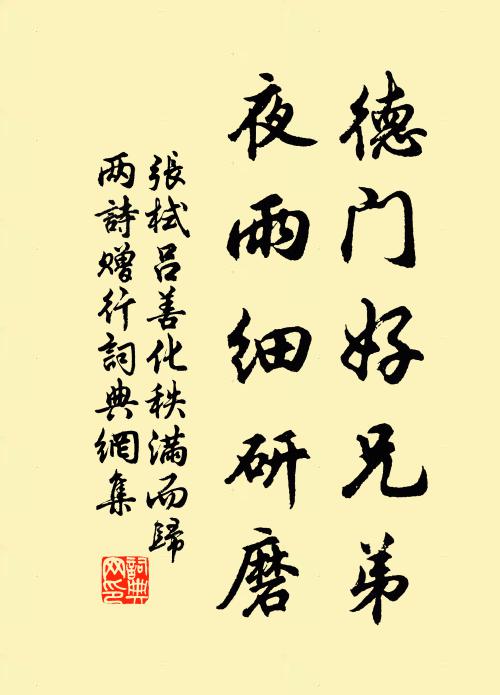 德门好兄弟
夜雨细研磨
張栻吕善化秩满而歸
两詩赠行詞典網集
詞典
网印